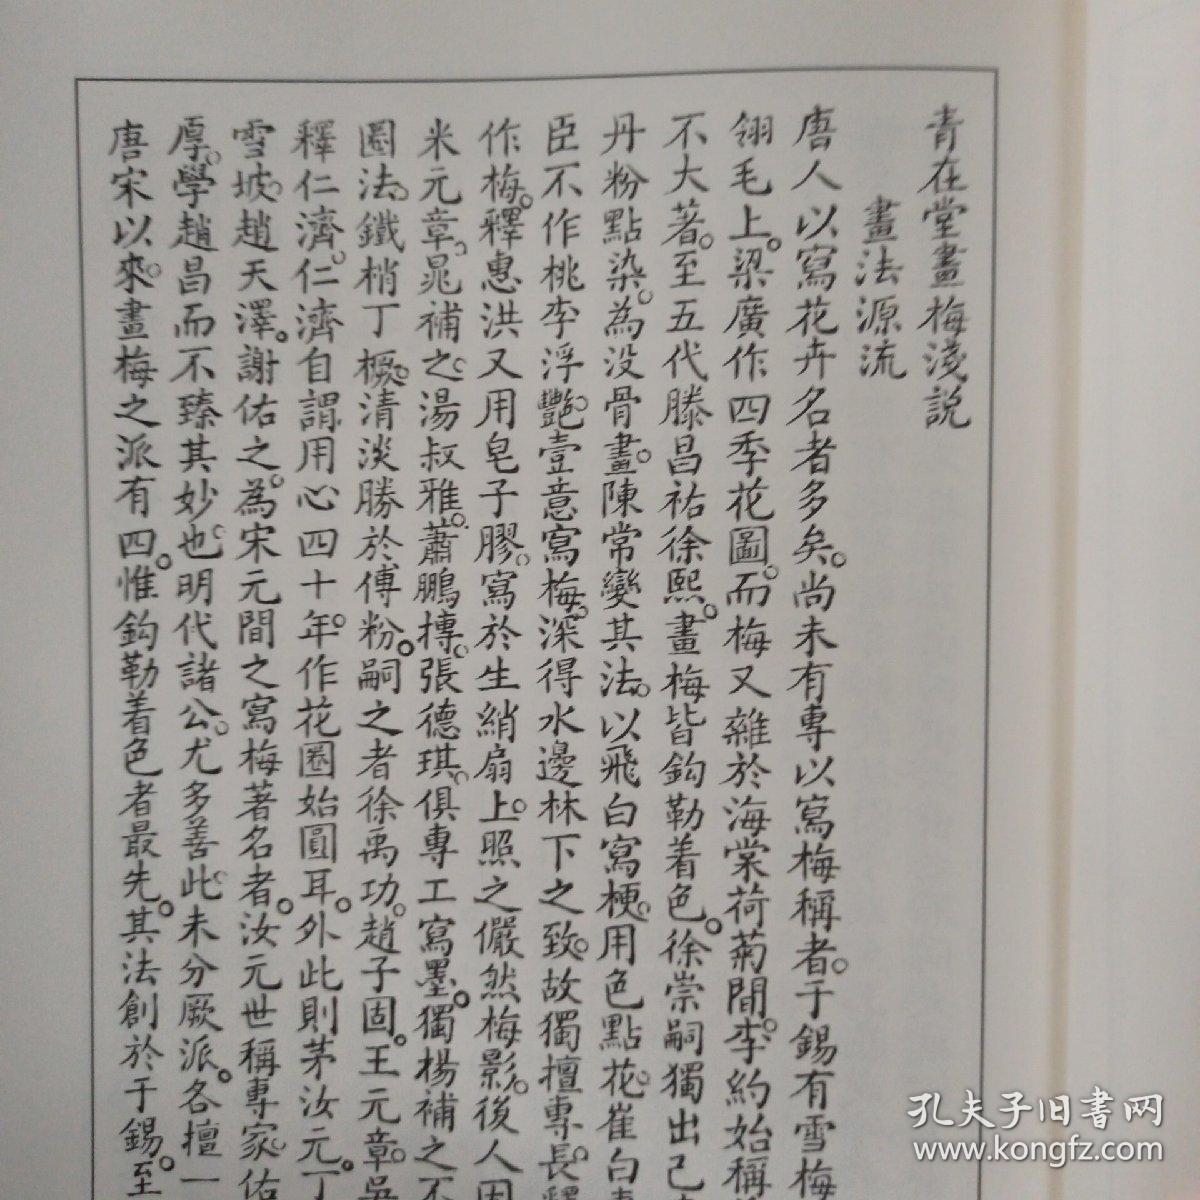 青在堂畫梅淺説
畫法源流
唐人以寫花卉名者多矣。尚未有專以寫梅稱者。于錫有雪梅
翎毛上。梁廣作四季花圖。而梅又雜於海棠荷菊間。李約始稱
不大著。至五代滕昌祐徐熙。畫梅皆鈎勒着色。徐崇嗣獨出己
丹粉點染。為没骨畫。陳常變其法。以飛白寫梗。用色點花。崔白
臣不作桃李浮艷。壹意寫梅。深得水邊林下之致。故獨擅專長。釋
作梅。釋惠洪又用皂子膠。寫於生綃扇上。照之儼然梅影。後人因
米元章。晁補之。湯叔雅。蕭鵬摶。張德琪。俱專工寫墨。獨楊補之不
圈法。鐵梢丁橛。清淡勝於傅粉。嗣之者徐禹功。趙子固。王元章。吳
釋仁濟。仁濟自謂用心四十年。作花圈始圓耳。外此則茅汝元。丁
雪坡。趙天澤。謝佑之。為宋元間之寫梅著名者。汝元世稱專家。佑
厚。學趙昌而不臻其妙也。明代諸公。尤多善此。未分厥派。各擅一
唐宋以來。畫梅之派有四。惟鈎勒着色者最先。其法創於于錫。至
孔夫子旧书网
www.kongfz.com